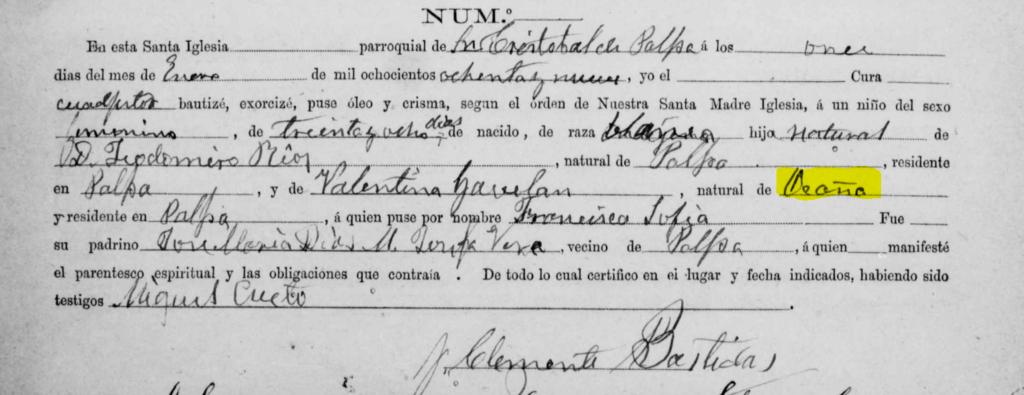 NUM.º
En esta Santa Iglesia parroquial de Sn Cristobal de Palpa á los once
dias del mes de Enero de mil ochocientos ochenta y nueve, yo el Cura
bautizé, exorcizé, puse óleo y crisma, segun el órden de Nuestra Santa Madre Iglesia, á un niño del sexo
femenino, de treinta y ocho dias de nacido, de raza blanca hija natural de
D. Teodomiro Rios, natural de Palpa, residente
en Palpa, y de Valentina Gavelan, natural de Ocaña
y residente en Palpa, á quien puse por nombre Francisca Sofia Fue
su padrino Jose Maria Dias M. Vera, vecino de Palpa, á quien manifesté
el parentesco espiritual y las obligaciones que contraía. De todo lo cual certifico en el lugar y fecha indicados, habiendo sido
testigos Miguel Cueto.
Clemente Bastidas